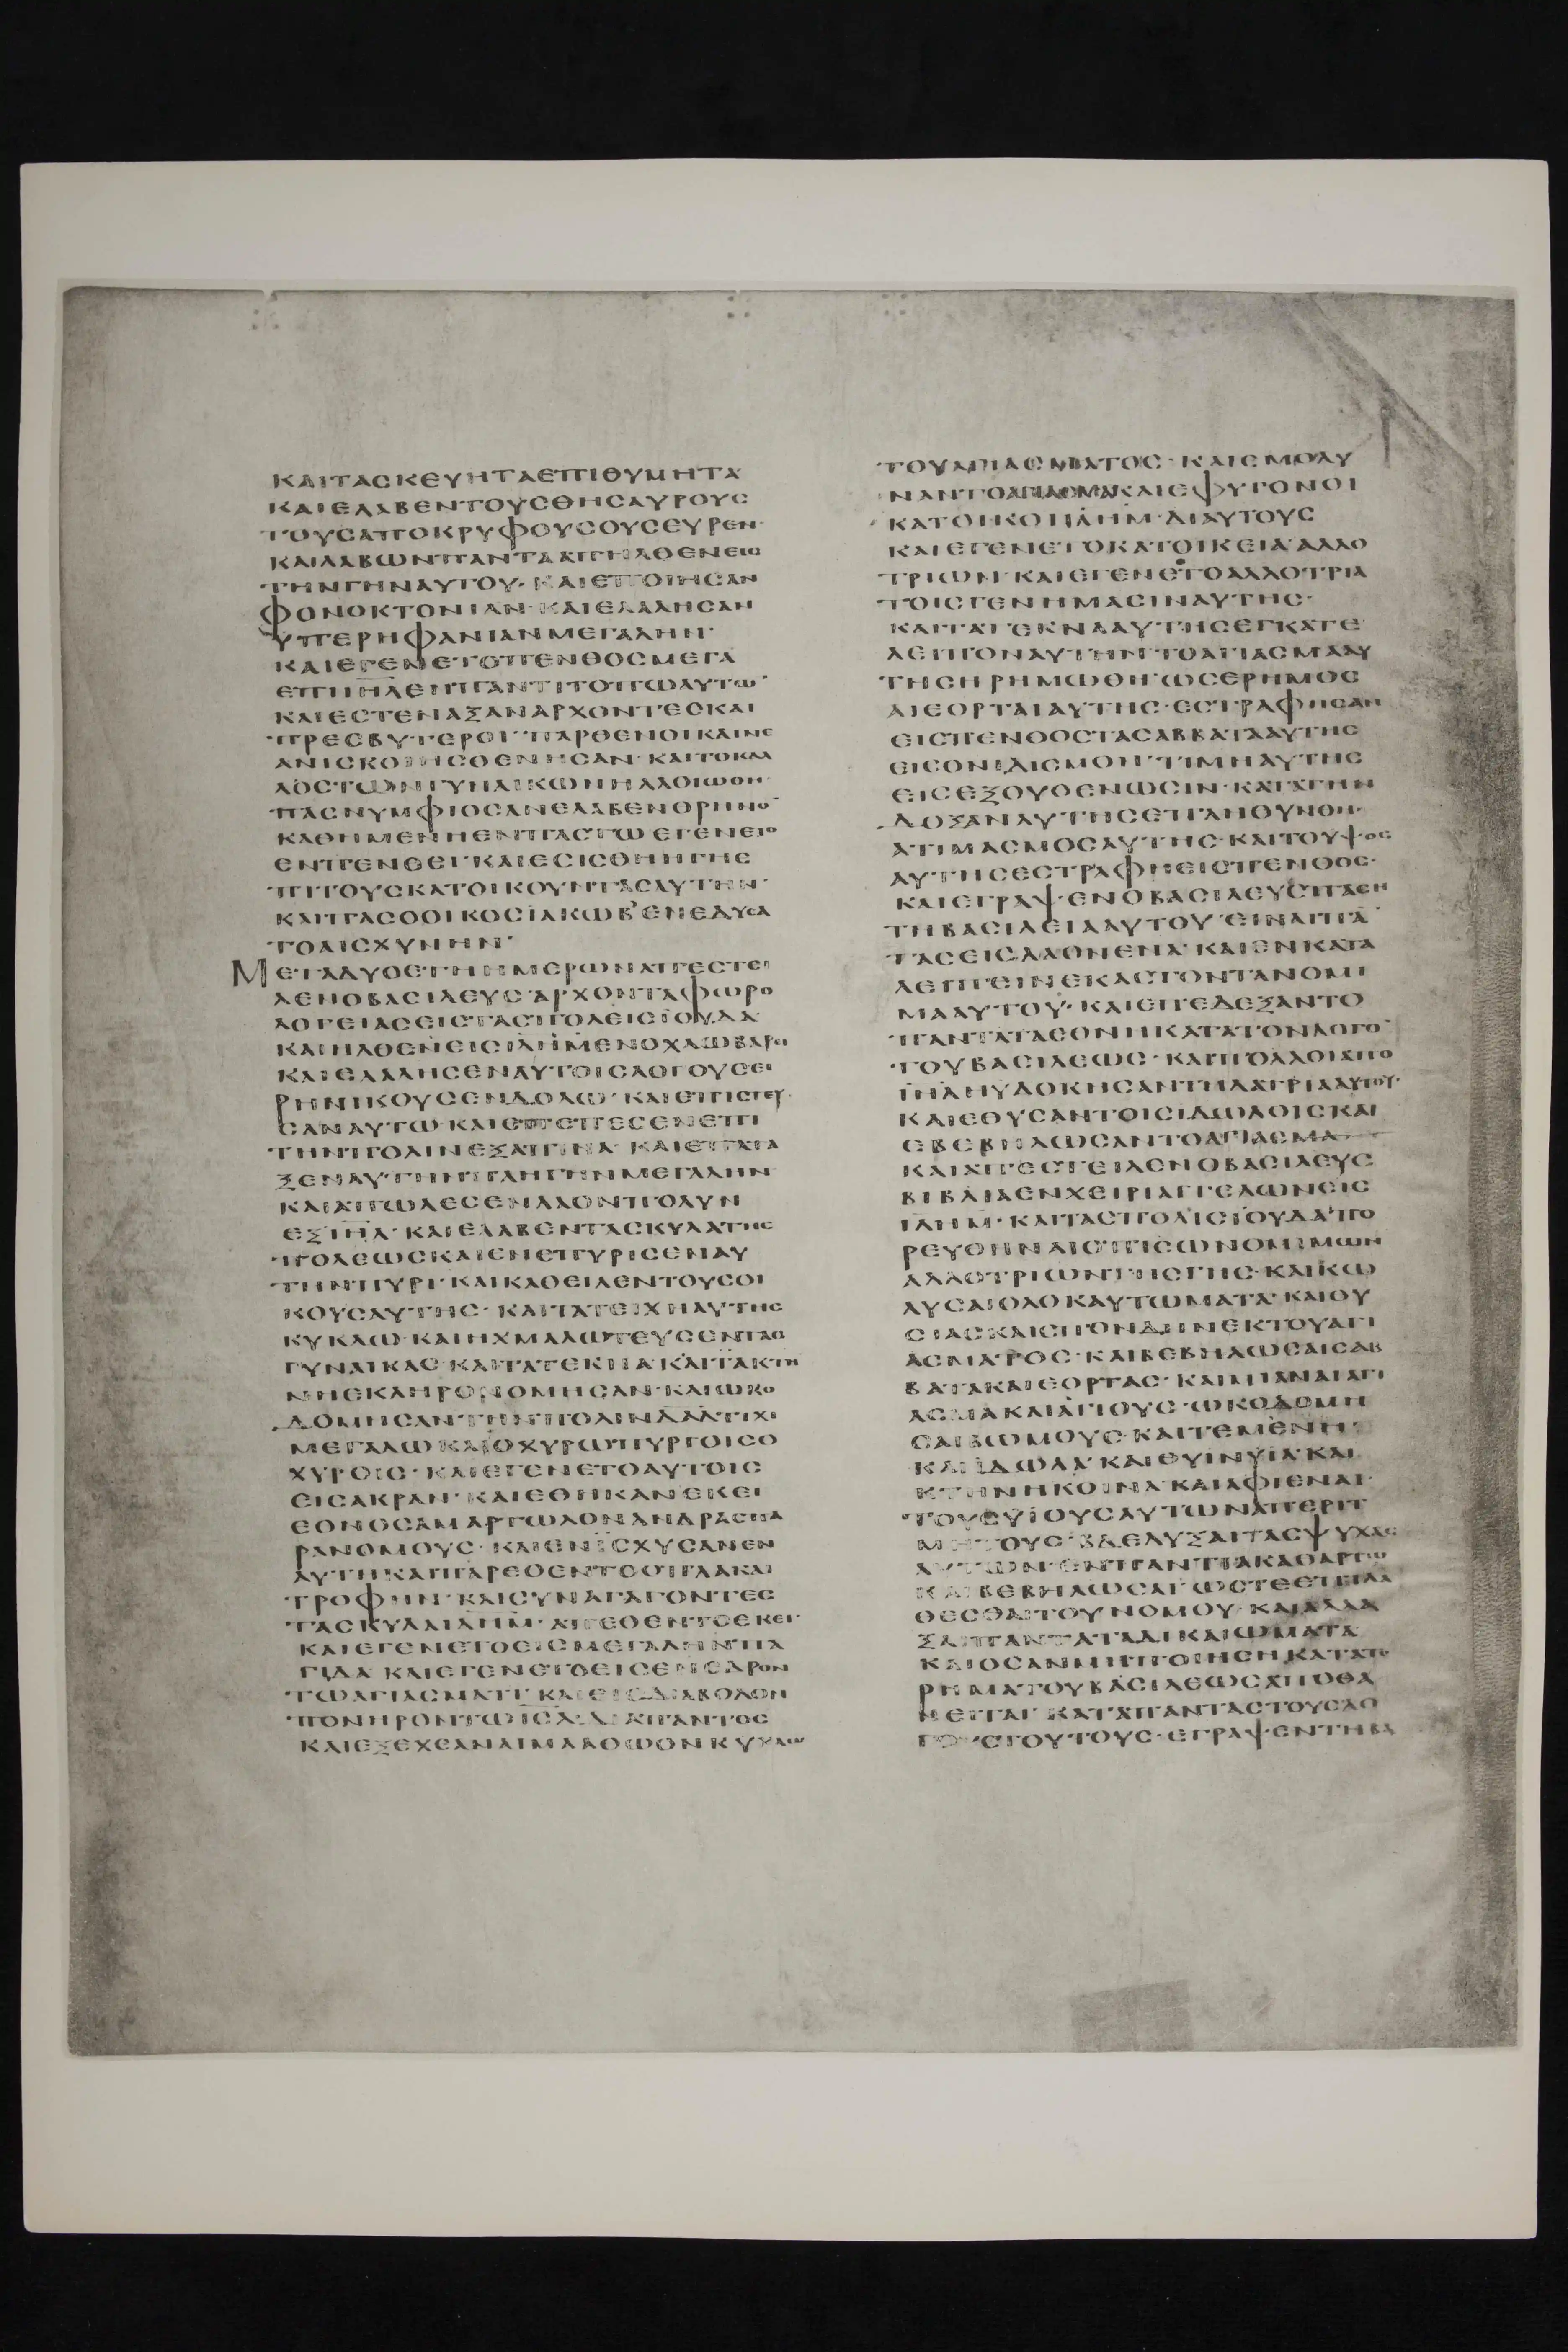 ΚΑΙΤΑΣΚΕΥΗΤΑΕΠΙΘΥΜΗΤΑ
ΚΑΙΕΛΑΒΕΝΤΟΥΣΘΗΣΑΥΡΟΥΣ
ΤΟΥΣΑΠΟΚΡΥΦΟΥΣΟΥΣΕΥΡΕΝ·
ΚΑΙΛΑΒΩΝΠΑΝΤΑΑΠΗΛΘΕΝΕΙΣ
ΤΗΝΓΗΝΑΥΤΟΥ· ΚΑΙΕΠΟΙΗΣΑΝ
ΦΟΝΟΚΤΟΝΙΑΝ· ΚΑΙΕΛΑΛΗΣΑΝ
ΥΠΕΡΗΦΑΝΙΑΝΜΕΓΑΛΗΝ·
ΚΑΙΕΓΕΝΕΤΟΠΕΝΘΟΣΜΕΓΑ
ΕΠΙΙΗΛΕΝΠΑΝΤΙΤΟΠΩΑΥΤΩ̅·
ΚΑΙΕΣΤΕΝΑΞΑΝΑΡΧΟΝΤΕΣΚΑΙ
ΠΡΕΣΒΥΤΕΡΟΙ· ΠΑΡΘΕΝΟΙΚΑΙΝΕ
ΑΝΙΣΚΟΙΗΣΘΕΝΗΣΑΝ· ΚΑΙΤΟΚΑΛ
ΛΟΣΤΩΝΓΥΝΑΙΚΩΝΗΛΛΟΙΩΘΗ·
ΠΑΣΝΥΜΦΙΟΣΑΝΕΛΑΒΕΝΘΡΗΝΟ̅
ΚΑΘΗΜΕΝΗΕΝΠΑΣΤΩΕΓΕΝΕΤΟ
ΕΝΠΕΝΘΕΙ· ΚΑΙΕΣΙΣΘΗΗΓΗΕ
ΠΙΤΟΥΣΚΑΤΟΙΚΟΥΝΤΑΣΑΥΤΗΝ·
ΚΑΙΠΑΣΟΟΙΚΟΣΙΑΚΩΒ᾽ΕΝΕΔΥΣΑ
ΤΟΑΙΣΧΥΝΗΝ·
ΜΕΤΑΔΥΟΕΤΗΗΜΕΡΩΝΑΠΕΣΤΕΙ
ΛΕΝΟΒΑΣΙΛΕΥΣΑΡΧΟΝΤΑΦΩΡΟ
ΛΟΓΕΙΑΣΕΙΣΤΑΣΠΟΛΕΙΣΪΟΥΔΑ·
ΚΑΙΗΛΘΕΝΕΙΣΙΛΗΜΕΝΟΧΛΩΒΑΡΕΙ
ΚΑΙΕΛΑΛΗΣΕΝΑΥΤΟΙΣΛΟΓΟΥΣΕΙ
ΡΗΝΙΚΟΥΣΕΝΔΟΛΩ· ΚΑΙΕΠΙΣΤΕΥ
ΣΑΝΑΥΤΩ· ΚΑΙΕΠΕΠΕΣΕΝΕΠΙ
ΤΗΝΠΟΛΙΝΕΞΑΠΙΝΑ· ΚΑΙΕΠΑΤΑ
ΞΕΝΑΥΤΗΝΠΛΗΓΗΝΜΕΓΑΛΗΝ
ΚΑΙΑΠΩΛΕΣΕΝΛΑΟΝΠΟΛΥΝ
ΕΞΙΗΛ· ΚΑΙΕΛΑΒΕΝΤΑΣΚΥΛΑΤΗΣ
ΠΟΛΕΩΣΚΑΙΕΝΕΠΥΡΙΣΕΝΑΥ
ΤΗΝΠΥΡΙ· ΚΑΙΚΑΘΕΙΛΕΝΤΟΥΣΟΙ
ΚΟΥΣΑΥΤΗΣ· ΚΑΙΤΑΤΕΙΧΗΑΥΤΗΣ
ΚΥΚΛΩ· ΚΑΙΗΧΜΑΛΩΤΕΥΣΕΝΤΑΣ
ΓΥΝΑΙΚΑΣ· ΚΑΙΤΑΤΕΚΝΑ· ΚΑΙΤΑΚΤΗ
ΝΗΕΚΛΗΡΟΝΟΜΗΣΑΝ· ΚΑΙΩΚΟ
ΔΟΜΗΣΑΝΤΗΝΠΟΛΙΝΔΑΔΤΙΧΙ
ΜΕΓΑΛΩΚΑΙΟΧΥΡΩΠΥΡΓΟΙΣΟ
ΧΥΡΟΙΣ· ΚΑΙΕΓΕΝΕΤΟΑΥΤΟΙΣ
ΕΙΣΑΚΡΑΝ· ΚΑΙΕΘΗΚΑΝΕΚΕΙ
ΕΘΝΟΣΑΜΑΡΤΩΛΟΝΑΝΔΡΑΣΠΑ
ΡΑΝΟΜΟΥΣ· ΚΑΙΕΝΪΣΧΥΣΑΝΕΝ
ΑΥΤΗΚΑΙΠΑΡΕΘΕΝΤΟΟΠΛΑΚΑΙ
ΤΡΟΦΗΝ· ΚΑΙΣΥΝΑΓΑΓΟΝΤΕΣ
ΤΑΣΚΥΛΑΙΛΗΜ· ΑΠΕΘΕΝΤΟΕΚΕΙ·
ΚΑΙΕΓΕΝΕΤΟΕΙΣΜΕΓΑΛΗΝΠΑ
ΓΙΔΑ· ΚΑΙΕΓΕΝΕΤΟΕΙΣΕΝΕΔΡΟΝ
ΤΩΑΓΙΑΣΜΑΤΙ· ΚΑΙΕΙΣΔΙΑΒΟΛΟΝ
ΠΟΝΗΡΟΝΤΩΙΣΛΔΙΑΠΑΝΤΟΣ
ΚΑΙΕΞΕΧΕΑΝΑΙΜΑΑΘΩΟΝΚΥΚΛΩ
ΤΟΥΑΓΙΑΣΜΑΤΟΣ· ΚΑΙΕΜΟΛΥ
ΝΑΝΤΟΑΓΙΑΣΜΑΚΑΙΕΦΥΓΟΝΟΙ
ΚΑΤΟΙΚΟΙΙΛΗΜ· ΔΙΑΥΤΟΥΣ
ΚΑΙΕΓΕΝΕΤΟΚΑΤΟΙΚΕΙΑΑΛΛΟ
ΤΡΙΩΝ· ΚΑΙΕΓΕΝΕΤΟΑΛΛΟΤΡΙΑ
ΤΟΙΣΓΕΝΗΜΑΣΙΝΑΥΤΗΣ·
ΚΑΙΤΑΤΕΚΝΑΑΥΤΗΣΕΓΚΑΤΕ
ΛΕΙΠΟΝΑΥΤΗΝ· ΤΟΑΓΙΑΣΜΑΑΥ
ΤΗΣΗΡΗΜΩΘΗ· ΩΣΕΡΗΜΟΣ
ΑΙΕΟΡΤΑΙΑΥΤΗΣ· ΕΣΤΡΑΦΗΣΑΝ
ΕΙΣΠΕΝΘΟΣΤΑΣΑΒΒΑΤΑΑΥΤΗΣ
ΕΙΣΟΝΙΔΙΣΜΟΝ· ΤΙΜΗΑΥΤΗΣ
ΕΙΣΕΞΟΥΘΕΝΩΣΙΝ· ΚΑΤΑΤΗΝ
ΔΟΞΑΝΑΥΤΗΣΕΠΛΗΘΥΝΘΗ·
ΑΤΙΜΑΣΜΟΣΑΥΤΗΣ· ΚΑΙΤΟΥΨΟΣ
ΑΥΤΗΣΕΣΤΡΑΦΗΕΙΣΠΕΝΘΟΣ·
ΚΑΙΕΓΡΑΨΕΝΟΒΑΣΙΛΕΥΣΠΑΣΗ
ΤΗΒΑΣΙΛΕΙΑΑΥΤΟΥ· ΕΙΝΑΙΠΑ̅
ΤΑΣΕΙΣΛΑΟΝΕΝΑ· ΚΑΙΕΝΚΑΤΑ
ΛΕΙΠΕΙΝΕΚΑΣΤΟΝΤΑΝΟΜΙ
ΜΑΑΥΤΟΥ· ΚΑΙΕΠΕΔΕΞΑΝΤΟ
ΠΑΝΤΑΤΑΕΘΝΗΚΑΤΑΤΟΝΛΟΓΟ̅
ΤΟΥΒΑΣΙΛΕΩΣ· ΚΑΙΠΟΛΛΟΙΑΠΟ
ΙΗΛΗΥΔΟΚΗΣΑΝΤΗΛΑΤΡΙΑΑΥΤΟΥ·
ΚΑΙΕΘΥΣΑΝΤΟΙΣΙΔΩΛΟΙΣΚΑΙ
ΕΒΕΒΗΛΩΣΑΝΤΟΑΓΙΑΣΜΑ
ΚΑΙΑΠΕΣΤΕΙΛΕΝΟΒΑΣΙΛΕΥΣ
ΒΙΒΛΙΑΕΝΧΕΙΡΙΑΓΓΕΛΩΝΕΙΣ
ΙΛΗΜ· ΚΑΙΤΑΣΠΟΛΙΣΪΟΥΔΑΠΟ
ΡΕΥΘΗΝΑΙΟΠΙΣΩΝΟΜΙΜΩΝ
ΑΛΛΟΤΡΙΩΝΤΗΣΓΗΣ· ΚΑΙΚΩ
ΛΥΣΑΙΟΛΟΚΑΥΤΩΜΑΤΑ· ΚΑΙΘΥ
ΣΙΑΣΚΑΙΣΠΟΝΔΗΝΕΚΤΟΥΑΓΙ
ΑΣΜΑΤΟΣ· ΚΑΙΒΕΒΗΛΩΣΑΙΣΑΒ
ΒΑΤΑΚΑΙΕΟΡΤΑΣ· ΚΑΙΜΙΑΝΑΙΑΓΙ
ΑΣΜΑΚΑΙΑΓΙΟΥΣ· ΩΚΟΔΟΜΗ
ΣΑΙΒΩΜΟΥΣ· ΚΑΙΤΕΜΕΝΗ·
ΚΑΙΪΔΩΛΑ· ΚΑΙΘΥΙΝΥΙΑ· ΚΑΙ
ΚΤΗΝΗΚΟΙΝΑ· ΚΑΙΑΦΙΕΝΑΙ·
ΤΟΥΣΥΙΟΥΣΑΥΤΩΝΑΠΕΡΙΤ
ΜΗΤΟΥΣ· ΒΔΕΛΥΞΑΙΤΑΣΨΥΧΑΣ
ΑΥΤΩΝ· ΕΝΠΑΝΤΙΑΚΑΘΑΡΤΩ
ΚΑΙΒΕΒΗΛΩΣΑΙ· ΩΣΤΕΕΠΙΛΑ
ΘΕΣΘΑΙΤΟΥΝΟΜΟΥ· ΚΑΙΑΛΛΑ
ΞΑΙΠΑΝΤΑΤΑΔΙΚΑΙΩΜΑΤΑ
ΚΑΙΟΣΑΝΜΗΠΟΙΗΣΗΚΑΤΑΤΟ
ΡΗΜΑΤΟΥΒΑΣΙΛΕΩΣΑΠΟΘΑ
ΝΕΙΤΑΙ· ΚΑΤΑΠΑΝΤΑΣΤΟΥΣΛΟ
ΓΟΥΣΤΟΥΤΟΥΣ· ΕΓΡΑΨΕΝΤΗΒΑ